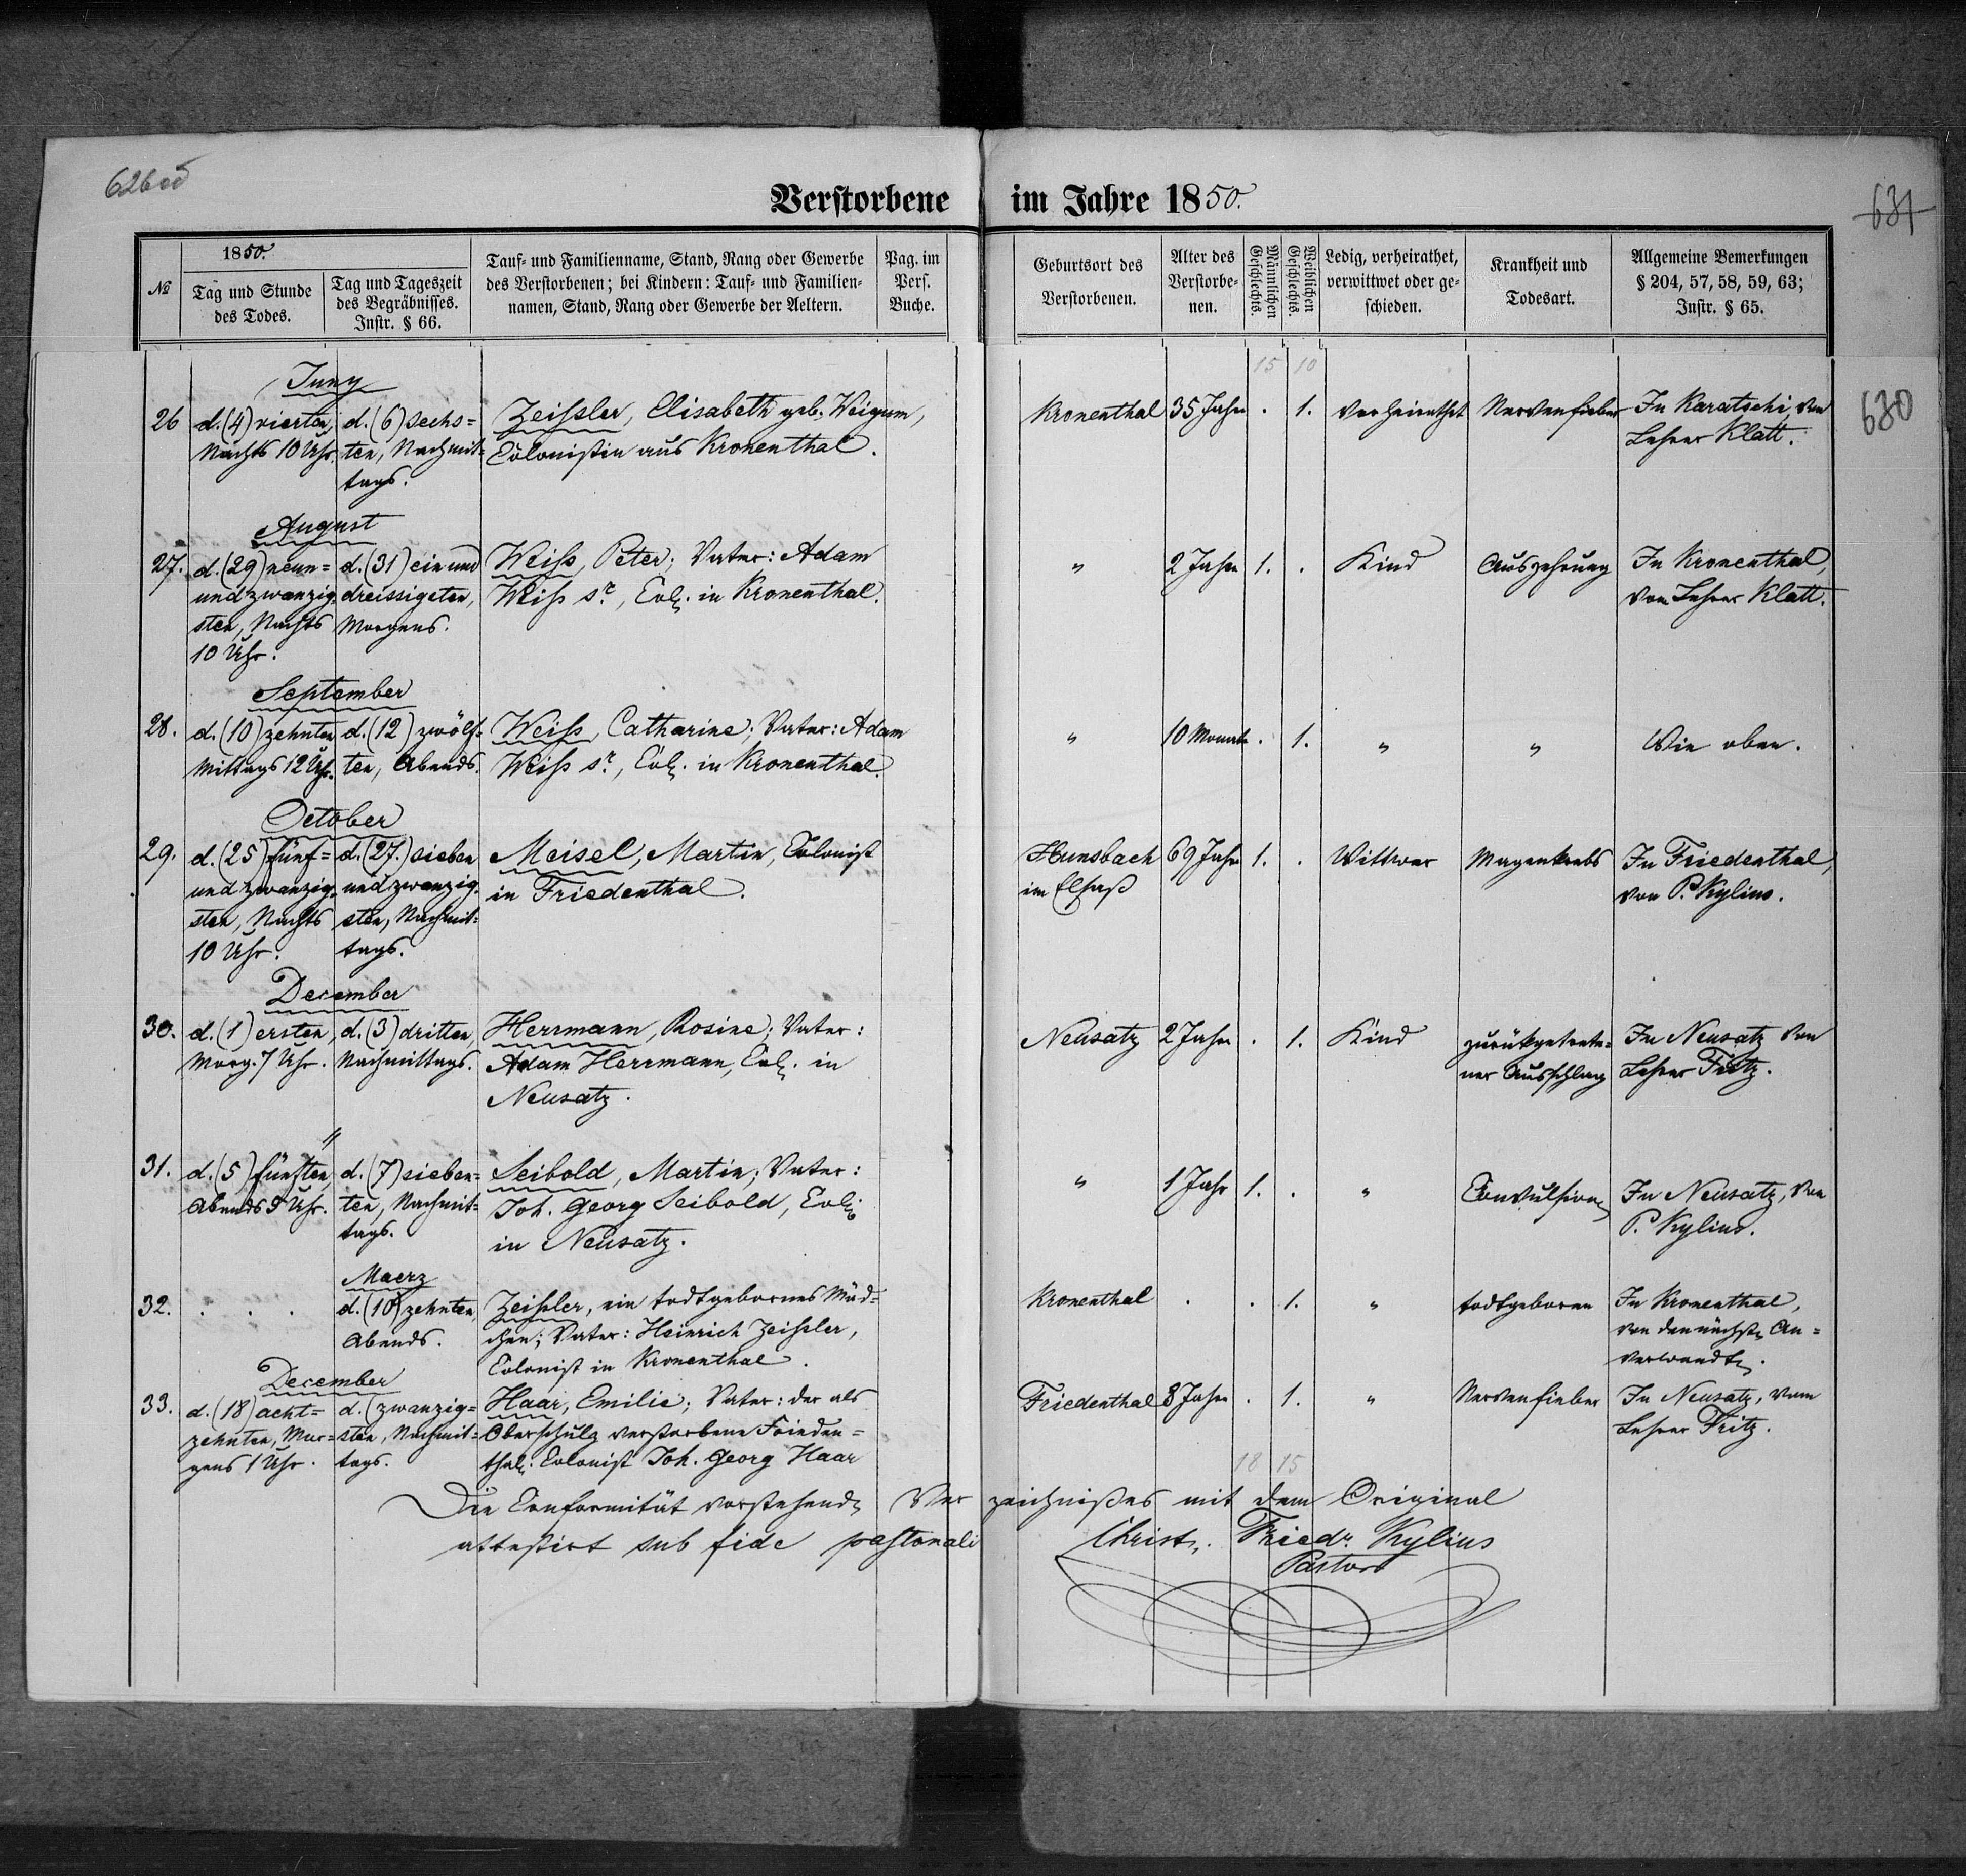 626 od
Verstorbene im Jahre 1850.
631
630
№
1850.
Tag und Stunde
des Todes.
Tag und Tageszeit
des Begräbnisses.
Instr. § 66.
Tauf- und Familienname, Stand, Rang oder Gewerbe
des Verstorbenen; bei Kindern: Tauf- und Familien-
namen, Stand, Rang oder Gewerbe der Aeltern.
Pag. im
Pers.
Buche.
Geburtsort des
Verstorbenen.
Alter des
Verstorbe-
nen.
Männlichen
Geschlechts.
Weiblichen
Geschlechts.
Ledig, verheirathet,
verwittwet oder ge-
schieden.
Krankheit und
Todesart.
Allgemeine Bemerkungen
§ 204, 57, 58, 59, 63;
Instr. § 65.
15 10
Juny
26
d. (4) vierten,
Nachts 10 Uhr.
d. (6) sechs=
ten, Nachmit=
tags.
Zeissler, Elisabeth geb. Weigum,
Colonistin aus Kronenthal.
Kronenthal
35 Jahre
. 1.
verheirathet
Nervenfieber
In Karatschi, von
Lehrer Klatt.
August
27.
d. (29) neun=
und zwanzig
sten, Nachts
10 Uhr.
d. (31) ein und
dreissigsten,
Morgens.
Weiss, Peter; Vater: Adam
Weiss sr., Col. in Kronenthal.
"
2 Jahre
1. .
Kind
Auszehrung
In Kronenthal,
vom Lehrer Klatt.
September
28.
d. (10) zehnten
Mittags 12 Uhr.
d. (12) zwölf=
ten, Abends.
Weiss, Catharine; Vater: Adam
Weiss sr., Col. in Kronenthal.
"
10 Monate
. 1.
"
"
Wie oben.
October
29.
d. (25) fünf=
und zwanzig=
sten, Nachts
10 Uhr.
d. (27.) sieben
und zwanzig=
sten, Nachmit=
tags.
Meisel, Martin, Colonist
in Friedenthal.
Hunsbach
im Elsaß
69 Jahre
1. .
Wittwer
Magenkrebs
In Friedenthal,
von P. Kylius.
December
30.
d. (1) ersten,
Morg. 7 Uhr.
d. (3) dritten,
Nachmittags.
Herrmann, Rosine; Vater:
Adam Herrmann, Col. in
Neusatz.
Neusatz
2 Jahre
. 1.
Kind
zurükgetrete=
ner Ausschlag
In Neusatz von
Lehrer Fritz.
"
31.
d. (5) fünften,
Abends 9 Uhr.
d. (7) sieben=
ten, Nachmit=
tags.
Seibold, Martin; Vater:
Joh. Georg Seibold, Col.
in Neusatz.
"
1 Jahr
1. .
"
Convulsionen
In Neusatz, von
P. Kylius.
Maerz
32.
. . .
d. (10) zehnten,
Abends.
Zeissler, ein todtgebornes Mäd=
chen; Vater: Heinrich Zeissler,
Colonist in Kronenthal.
Kronenthal
.
. 1.
"
todtgeboren
In Kronenthal,
von den nächsten An=
verwandten.
December
33.
d. (18) acht=
zehnten, Mor=
gens 1 Uhr.
d. (zwanzig=
sten, Nachmit=
tags.
Haar, Emilie; Vater: der als
Oberschulz verstorbene Frieden=
thal. Colonist Joh. Georg Haar
Friedenthal
8 Jahre
. 1.
"
Nervenfieber
In Neusatz, vom
Lehrer Fritz.
18 15
Die Conformität vorstehenden Verzeichnißes mit dem Original
attestirt sub fide pastorali Christ. Friedr. Kylius
Pastor